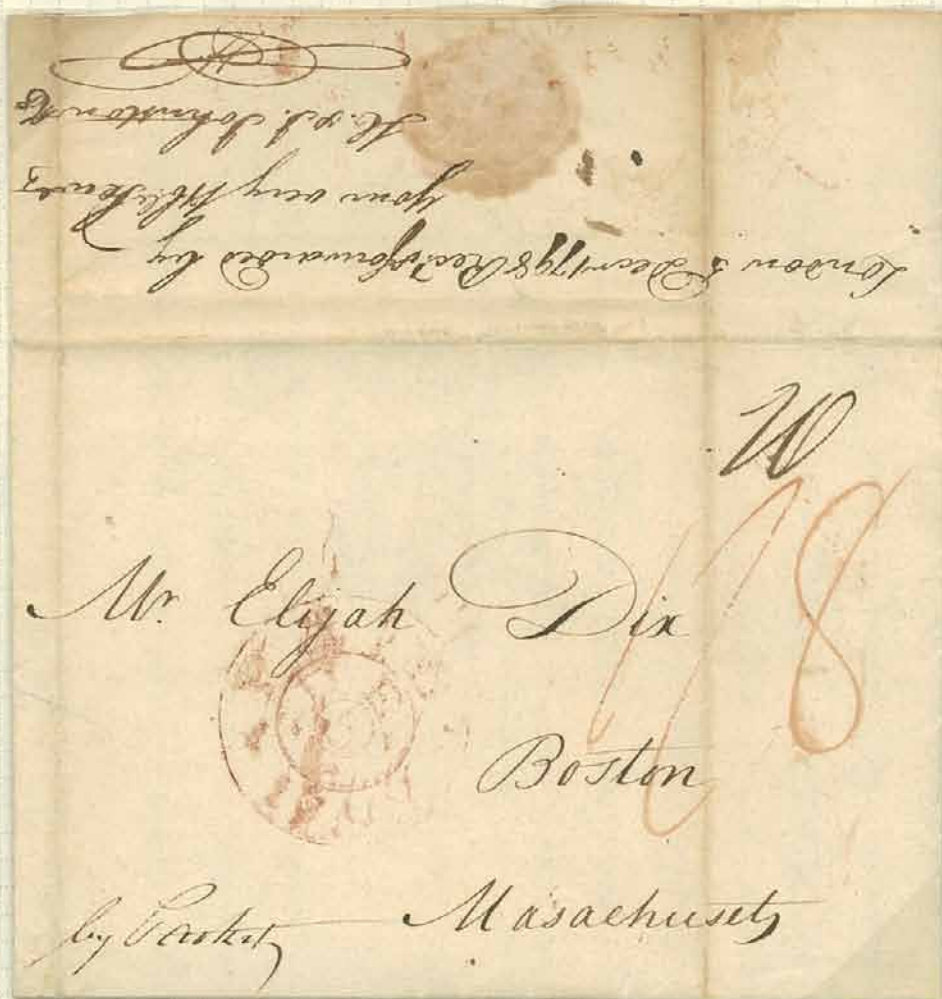 London 5 Decr 1798 Recd & forwarded by
your very Hble Servts
H. & J. Johnston & Co
20
1/8
Mr. Elijah Dix
Boston
Masachusets
by Packet